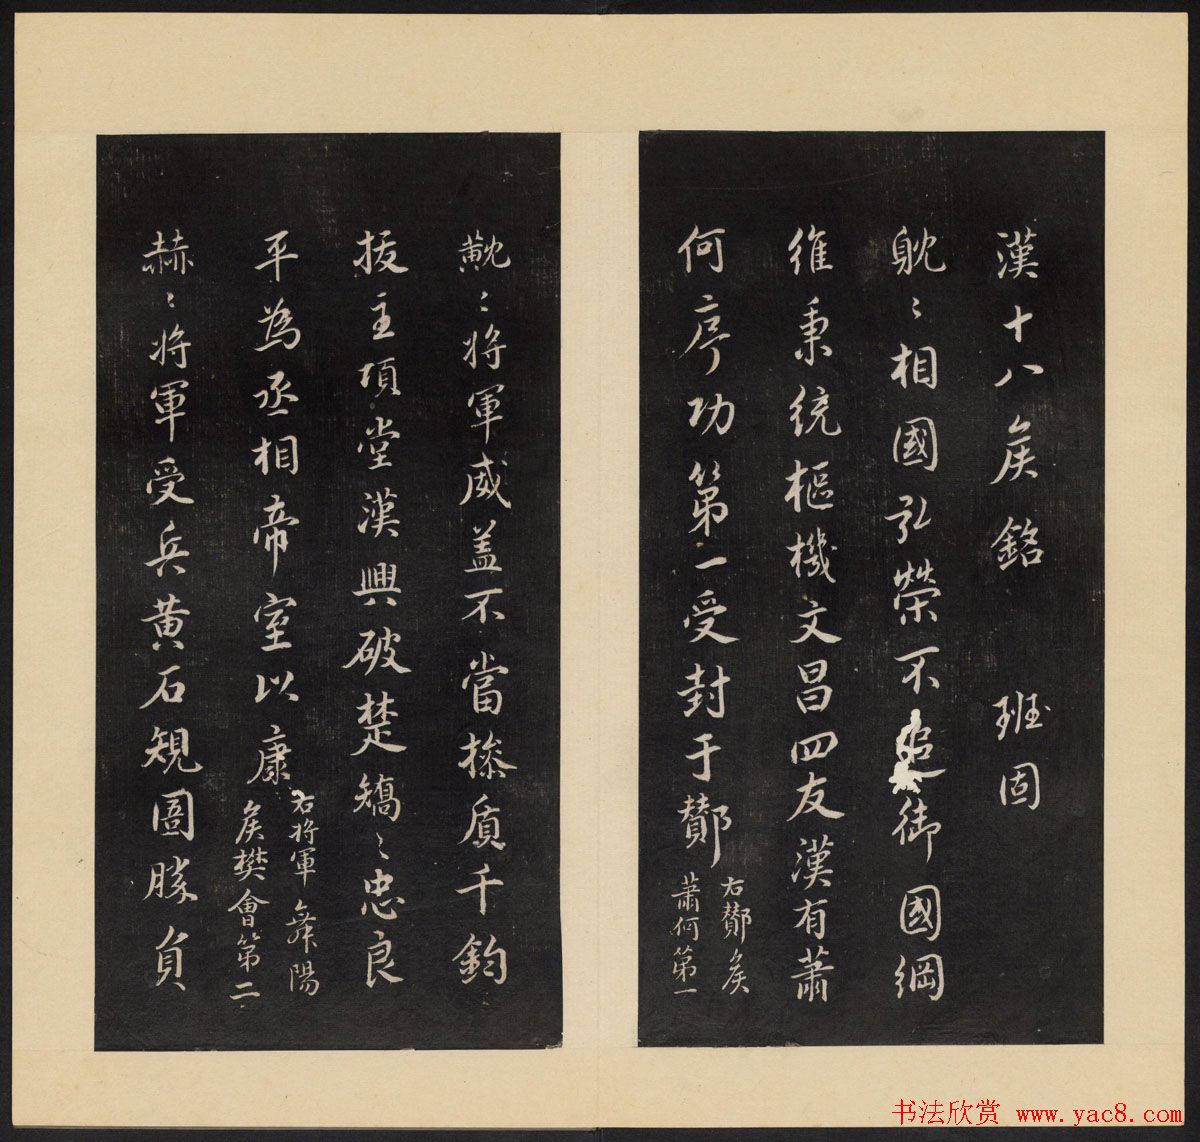 漢十八矦銘 班固
躭〻相國弘榮不追御國綱
維秉統樞機文昌四友漢有蕭
何序功第一受封于酇
右酇矦
蕭何第一
黈〻將軍威盖不當操質千鈞
拔主項堂漢興破楚矯〻忠良
平為丞相帝室以康
右將軍舞陽
矦樊會第二
赫〻將軍受兵黄石規圖勝負
书法欣赏 www.yac8.com